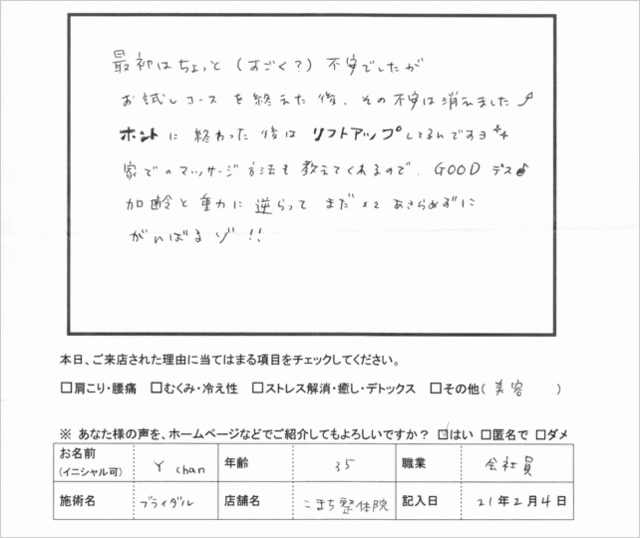 最初はちょっと(すごく?)不安でしたが
お試しコースを終えた後、その不安は消えました⤴
ホントに終わった後はリフトアップしてるんですヨ
家でのマッサージ方法も教えてくれるので、GOODデス♪
加齢と重力に逆らってまだ××あきらめずに
がんばるゾ!!
本日、ご来店された理由に当てはまる項目をチェックしてください。
□肩こり・腰痛 □むくみ・冷え性 □ストレス解消・癒し・デトックス □その他(美容)
※ あなた様の声を、ホームページなどでご紹介してもよろしいですか? ☑はい □匿名で □ダメ
お名前(イニシャル可) Y chan 年齢 35 職業 会社員
施術名 ブライダル 店舗名 こまち整体院 記入日 21年2月4日